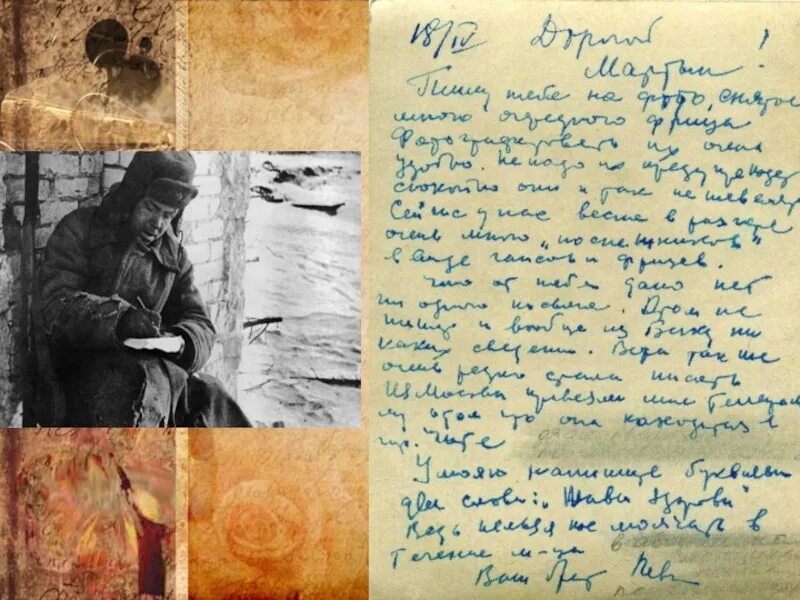 18/IV Дорогой
Мартын!
Пишу тебе на фото, снятое
много очередного фрица
Фотографировать их очень
удобно. Не надо их предупреждат
спокойно они и так не шевел
Сейчас у нас весна в разгаре
очень много „подснежников"
в виде гансов и фрицев.
Что от тебя давно нет
ни одного письма. Дгом не
пишу и вообще из Баку ни
каких сведений. Вера так же
очень редко стала писать
Из Москвы привезли мне Телеграм
му о том что она находится в
гор. Чите
Умоляю напишите буквально
два слова: „Жавы здоровы"
Ведь нельзя же молчать в
Течение м-ца
Ваш брат